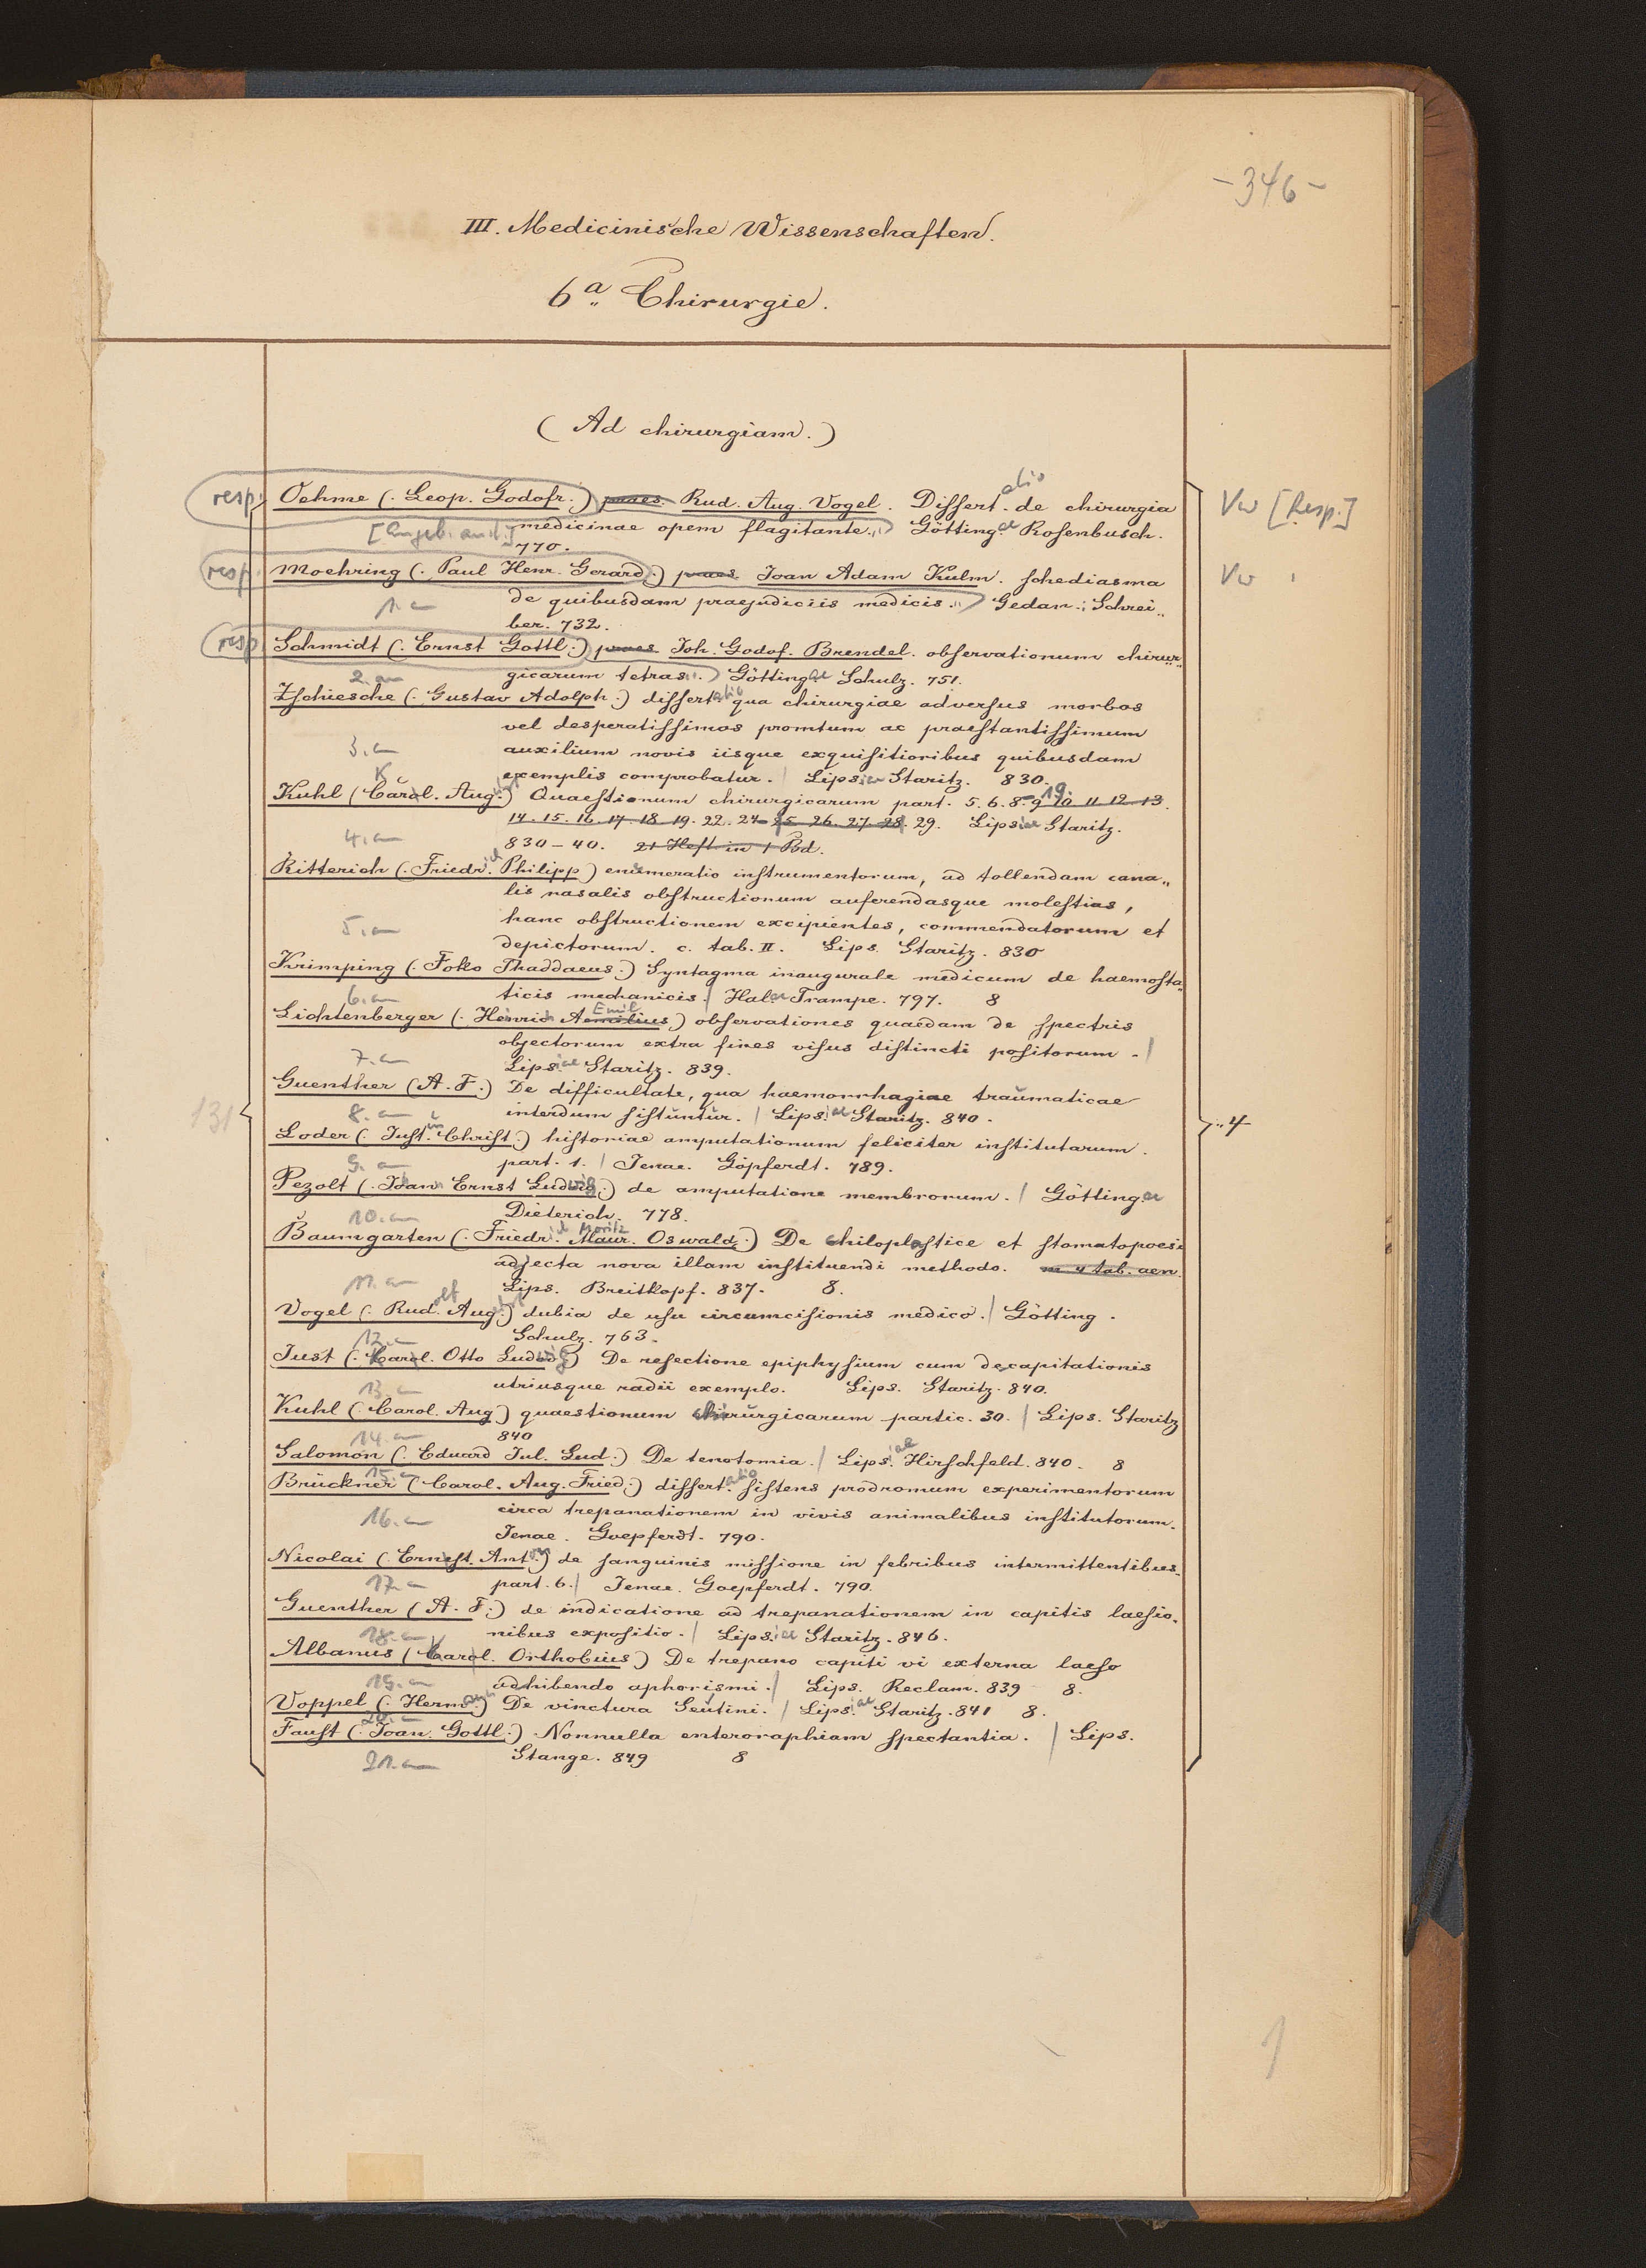 -346-
III. Medicinische Wissenschaften.
6a. Chirurgie.
(Ad chirurgiam.)
resp. Oehme (. Leop. Godofr.) praes. Rud. Aug. Vogel. Dissert.atio de chirurgia Vw [Resp.]
medicinae opem flagitante.) Götting.ae Rosenbusch.
770.
resp. Moehring (. Paul Henr. Gerard.) praes. Joan Adam Kulm. schediasma Vw
1. an de quibusdam praejudiciis medicis.) Gedan.; Schrei„
ber. 732.
resp. Schmidt (. Ernst Gottl.) praes. Joh. Godof. Brendel. observationum chirur„
2. an gicarum tetras.) Götting.ae Schulz. 751.
Zschiesche (. Gustav Adolph.) dissertatio qua chirurgiae adversus morbos
vel desperatissimos promtum ac praestantissimum
3. an auxilium novis iisque exquisitioribus quibusdam
exemplis comprobatur. | Lipsiae Staritz. 830.
Kuhl (Carol. August) Quaestionum chirurgicarum part. 5. 6. 8-19. 9 10 11 12 13.
14. 15. 16. 17. 18. 19. 22. 24-25. 26. 27. 28. 29. Lipsiae Staritz.
4. an 830-40. 21 Heft in 1 Bd.
Ritterich (. Friedrich Philipp) enumeratio instrumentorum, ad tollendam cana„
lis nasalis obstructionum auferendasque molestias,
5. an hanc obstructionem excipientes, commendatorum et
depictorum. c. tab. II. Lips. Staritz. 830
Krimping (. Foko Thaddaeus.) Syntagma inaugurale medicum de haemosta„
6. an ticis mechanicis. | Halae Trampe. 797. 8
Lichtenberger (. Heinrich Aemilius Emil) observationes quaedam de spectris
objectorum extra fines visus distincti positorum. |
7. an Lipsiae Staritz. 839.
Guenther (A. F.) De difficultate, qua haemorrhagiae traumaticae
131 8. an interdum sistuntur. | Lipsiae Staritz. 840. „4
Loder (. Just. Christ.) historiae amputationum feliciter institutarum.
9. an part. 1. | Jenae. Göpferdt. 789.
Pezolt (. Johann Ernst Ludwig.) de amputatione membrorum. | Göttingae
10. an Dieterich. 778.
Baumgarten (. Friedrich Moritz Maur. Oswald.) De chiloplastice et stomatopoesi
adjecta nova illam instituendi methodo. m. 4 tab. aen.
11. an Lips. Breitkopf. 837. 8.
Vogel (. Rudolf August) dubia de usu circumcisionis medico. | Götting.
12. an Schulz. 763.
Just (. Karl Otto Ludwig) De resectione epiphysium cum decapitationis
13. an utriusque radii exemplo. Lips. Staritz. 840.
Kuhl (. Carol. Aug.) quaestionum chirurgicarum partic. 30. | Lips. Staritz
14. an 840
Salomon (. Eduard Jul. Lud.) De tenotomia. | Lipsiae Hirschfeld. 840. 8
15. an
Brückner (Carol. Aug. Fried.) dissertatio sistens prodromum experimentorum
16. an circa trepanationem in vivis animalibus institutorum.
Jenae. Goepferdt. 790.
Nicolai (. Ernst. Anton) de sanguinis missione in febribus intermittentibus.
17. an part. 6. | Jenae. Goepferdt. 790.
Guenther (A. F.) de indicatione ad trepanationem in capitis laesio„
18. an nibus expositio. | Lipsiae Staritz. 846.
Albanus (Karl. Orthobius) De trepano capiti vi externa laeso
19. an adhibendo aphorismi. | Lips. Reclam. 839 8.
Voppel (. Hermann) De vinctura Seutini. | Lipsiae Staritz. 841 8.
20. an
Faust (. Joan. Gottl.) Nonnulla enteroraphiam spectantia. | Lips.
21. an Stange. 849 8
1